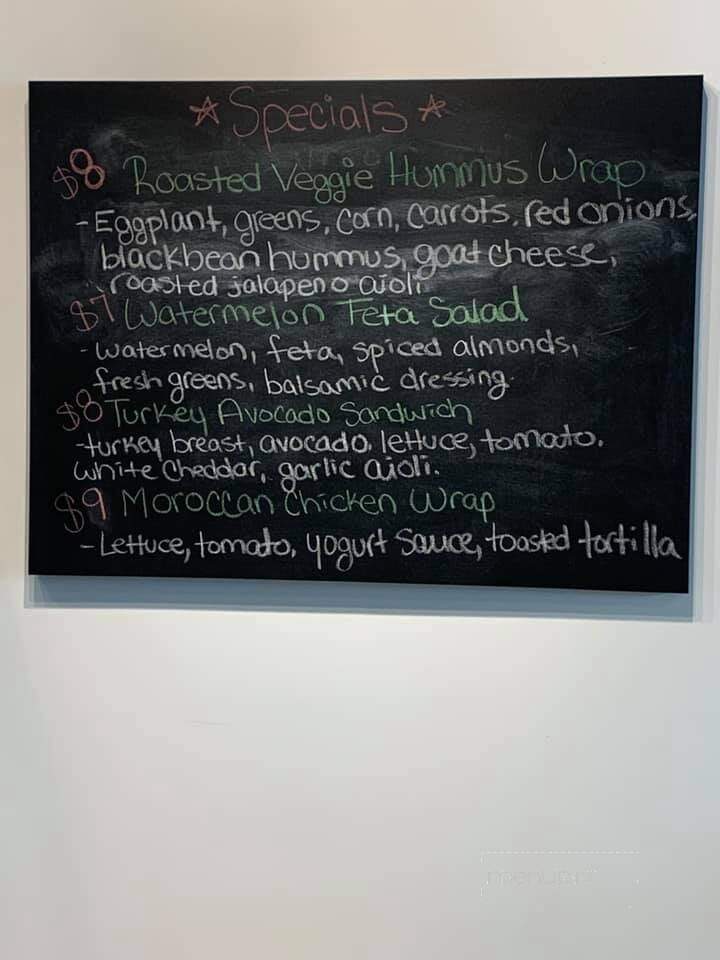 ☆ Specials ☆
$8 Roasted Veggie Hummus Wrap
- Eggplant, greens, corn, carrots, red onions,
blackbean hummus, goat cheese,
roasted jalapeno aioli
$7 Watermelon Feta Salad
- watermelon, feta, spiced almonds,
fresh greens, balsamic dressing.
$8 Turkey Avocado Sandwich
- turkey breast, avocado, lettuce, tomato,
white cheddar, garlic aioli.
$9 Moroccan Chicken Wrap
- Lettuce, tomato, yogurt sauce, toasted tortilla